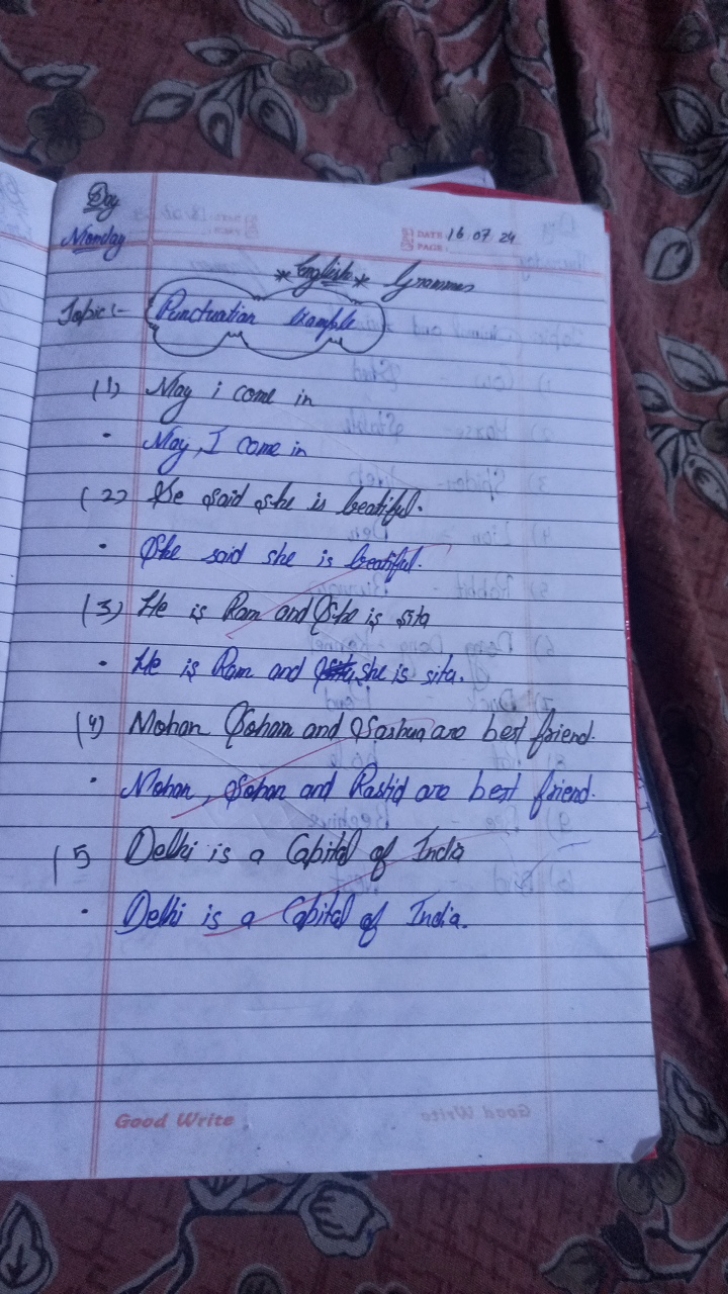 Day
Monday
DATE 16.07.24
PAGE
* English * Grammer
Topic :- Punctuation Example
(1) May i come in
• May, I come in
(2) He said she is beatiful.
• She said she is beatiful.
(3) He is Ram and She is sita
• He is Ram and she is sita.
(4) Mohan Sohan and are best friend.
• Mohan, Sohan and Rashid are best friend.
(5 Delhi is a Capital of India
• Delhi is a Capital of India.
Good Write